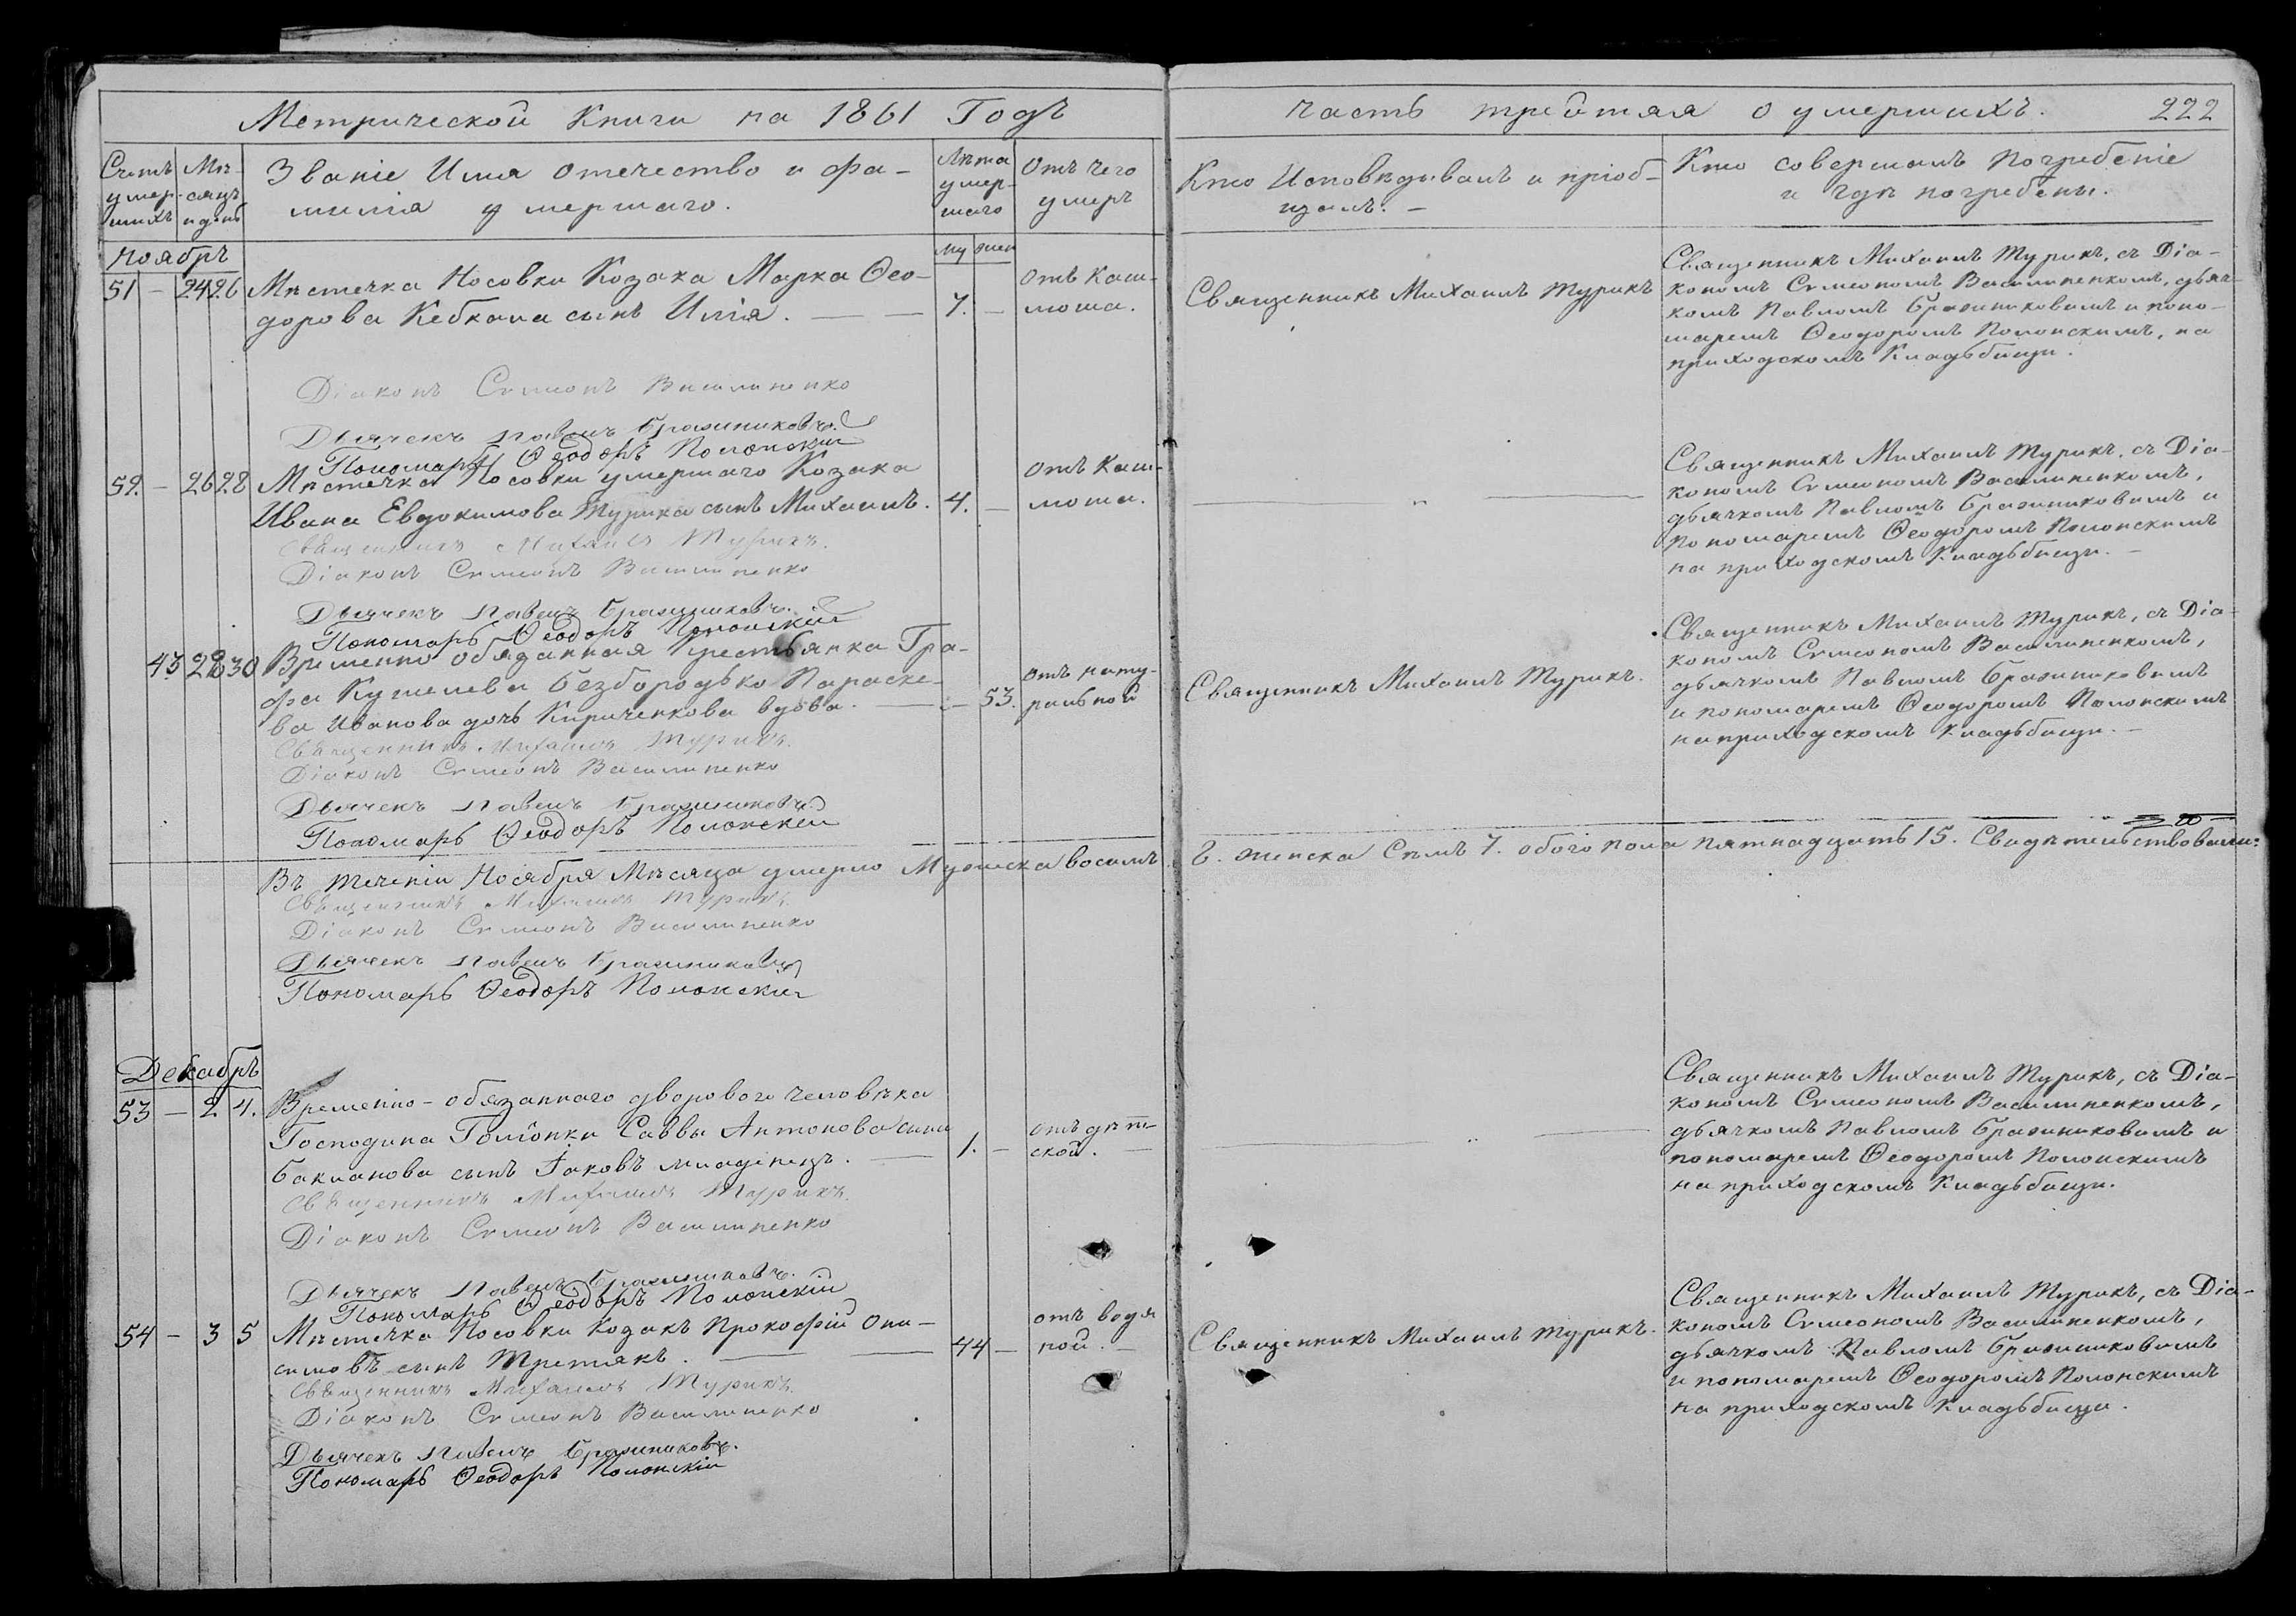 Метрической Книги на 1861 Годъ
часть третїая о умершихъ. 222
Счетъ умер-шихъ
Мѣ-сяцъ и день
Званіе Имя отечество и фа-
милія умершаго.
Лѣта умер-шаго
Отъ чего умеръ
Кто Исповѣдывалъ и пріоб-
щалъ. –
Кто совершалъ погребеніе
и гдѣ погребены.
Ноябрь
му жен
51 – 24 26 Мѣстечка Носовки Козака Марка Ѳео-
дорова Кебкала сынъ Илія. — — 7. –
отъ каш-
люша.
Священникъ Михаилъ Турикъ
Священникъ Михаилъ Турикъ, съ Діа-
кономъ Симеономъ Василиненкомъ, дьяч-
комъ Павломъ Бражниковымъ и поно-
маремъ Ѳеодоромъ Полонскимъ, на
приходскомъ Кладьбищи.
Діаконъ Симеонъ Василиненко
Дьячекъ Павелъ Бражниковъ.
Пономарь Ѳеодоръ Полонскій
52. – 26 28 Мѣстечка Носовки умершаго Козака
Ивана Евдокимова Турика сынъ Михаилъ. 4. –
отъ каш-
люша.
— „ —
Священникъ Михаилъ Турикъ, съ Діа-
кономъ Симеономъ Василиненкомъ,
дьячкомъ Павломъ Бражниковымъ и
Пономаремъ Ѳеодоромъ Полонскимъ
на приходскомъ Кладьбищи. –
Священникъ Михаилъ Турикъ.
Діаконъ Симеонъ Василиненко
Дьячекъ Павелъ Бражниковъ.
Пономарь Ѳеодоръ Полонскій
43 28 30 Временно обязанная Крестьянка Гра-
фа Кушелева Безбородько Параске-
ва Иванова дочь Кириченкова вдова. — – 53.
отъ нату-
ральной
Священникъ Михаилъ Турикъ.
Священникъ Михаилъ Турикъ, съ Діа-
кономъ Симеономъ Василиненкомъ,
дьячкомъ Павломъ Бражниковымъ
и пономаремъ Ѳеодоромъ Полонскимъ
на приходскомъ Кладьбищи. –
Священникъ Михаилъ Турикъ.
Діаконъ Симеонъ Василиненко
Дьячекъ Павелъ Бражниковъ.
Пономарь Ѳеодоръ Полонскій
Въ теченіи Ноября Мѣсяца умерло Мужеска восемь 8. женска Семь 7. обого пола пятнадцать 15. Свидѣтельствовали:
Священникъ Михаилъ Турикъ.
Діаконъ Симеонъ Василиненко
Дьячекъ Павелъ Бражниковъ
Пономарь Ѳеодоръ Полонскій
Декабрь
53 – 2 4. Временно-обязаннаго двороваго человѣка
Господина Голіонки Саввы Антонова сына
Бакланова сынъ Іаковъ младенецъ. — 1. –
отъ дѣт-
ской. –
— „ —
Священникъ Михаилъ Турикъ, съ Діа-
кономъ Симеономъ Василиненкомъ,
дьячкомъ Павломъ Бражниковымъ и
пономаремъ Ѳеодоромъ Полонскимъ
на приходскомъ Кладьбищи.
Священникъ Михаилъ Турикъ.
Діаконъ Симеонъ Василиненко
Дьячекъ Павелъ Бражниковъ.
Пономарь Ѳеодоръ Полонскій
54 – 3 5 Мѣстечка Носовки Козакъ Прокофій Они-
симовъ сынъ Третякъ. — — 44 –
отъ водя
ной. –
Священникъ Михаилъ Турикъ.
Священникъ Михаилъ Турикъ, съ Діа-
кономъ Симеономъ Василиненкомъ,
дьячкомъ Павломъ Бражниковымъ
и пономаремъ Ѳеодоромъ Полонскимъ
на приходскомъ Кладьбищи.
Священникъ Михаилъ Турикъ.
Діаконъ Симеонъ Василиненко
Дьячекъ Павелъ Бражниковъ.
Пономарь Ѳеодоръ Полонскій